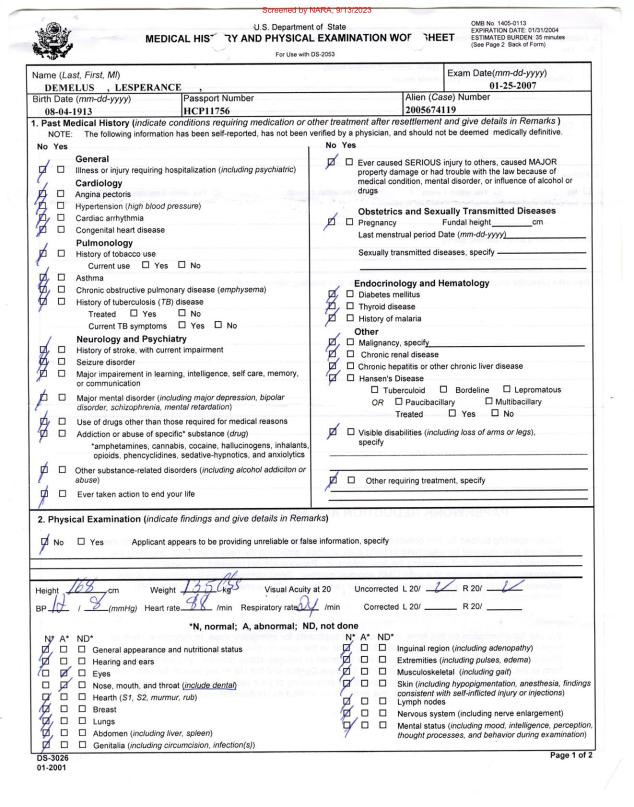 Screened by NARA, 9/13/2023
U.S. Department of State
MEDICAL HIS Y AND PHYSICAL EXAMINATION WOR SHEET
For Use with DS-2053
OMB No. 1405-0113
EXPIRATION DATE: 01/31/2004
ESTIMATED BURDEN: 35 minutes
(See Page 2 Back of Form)
Name (Last, First, MI)
DEMELUS , LESPERANCE ,
Exam Date(mm-dd-yyyy)
01-25-2007
Birth Date (mm-dd-yyyy)
08-04-1913
Passport Number
HCP11756
Alien (Case) Number
2005674119
1. Past Medical History (indicate conditions requiring medication or other treatment after resettlement and give details in Remarks)
NOTE: The following information has been self-reported, has not been verified by a physician, and should not be deemed medically definitive.
No Yes
General
Illness or injury requiring hospitalization (including psychiatric)
Cardiology
Angina pectoris
Hypertension (high blood pressure)
Cardiac arrhythmia
Congenital heart disease
Pulmonology
History of tobacco use
Current use Yes No
Asthma
Chronic obstructive pulmonary disease (emphysema)
History of tuberculosis (TB) disease
Treated Yes No
Current TB symptoms Yes No
Neurology and Psychiatry
History of stroke, with current impairment
Seizure disorder
Major impairment in learning, intelligence, self care, memory,
or communication
Major mental disorder (including major depression, bipolar
disorder, schizophrenia, mental retardation)
Use of drugs other than those required for medical reasons
Addiction or abuse of specific* substance (drug)
*amphetamines, cannabis, cocaine, hallucinogens, inhalants,
opioids, phencyclidines, sedative-hypnotics, and anxiolytics
Other substance-related disorders (including alcohol addiciton or
abuse)
Ever taken action to end your life
No Yes
Ever caused SERIOUS injury to others, caused MAJOR
property damage or had trouble with the law because of
medical condition, mental disorder, or influence of alcohol or
drugs
Obstetrics and Sexually Transmitted Diseases
Pregnancy Fundal height cm
Last menstrual period Date (mm-dd-yyyy)
Sexually transmitted diseases, specify
Endocrinology and Hematology
Diabetes mellitus
Thyroid disease
History of malaria
Other
Malignancy, specify
Chronic renal disease
Chronic hepatitis or other chronic liver disease
Hansen's Disease
Tuberculoid Bordeline Lepromatous
OR Paucibacillary Multibacillary
Treated Yes No
Visible disabilities (including loss of arms or legs),
specify
Other requiring treatment, specify
2. Physical Examination (indicate findings and give details in Remarks)
No Yes Applicant appears to be providing unreliable or false information, specify
Height 168 cm Weight 135 lbs kg Visual Acuity at 20 Uncorrected L 20/ R 20/
BP / 8 (mmHg) Heart rate 88 /min Respiratory rate /min Corrected L 20/ R 20/
*N, normal; A, abnormal; ND, not done
N* A* ND*
General appearance and nutritional status
Hearing and ears
Eyes
Nose, mouth, and throat (include dental)
Hearth (S1, S2, murmur, rub)
Breast
Lungs
Abdomen (including liver, spleen)
Genitalia (including circumcision, infection(s))
N* A* ND*
Inguinal region (including adenopathy)
Extremities (including pulses, edema)
Musculoskeletal (including gait)
Skin (including hypopigmentation, anesthesia, findings
consistent with self-inflicted injury or injections)
Lymph nodes
Nervous system (including nerve enlargement)
Mental status (including mood, intelligence, perception,
thought processes, and behavior during examination)
DS-3026
01-2001
Page 1 of 2